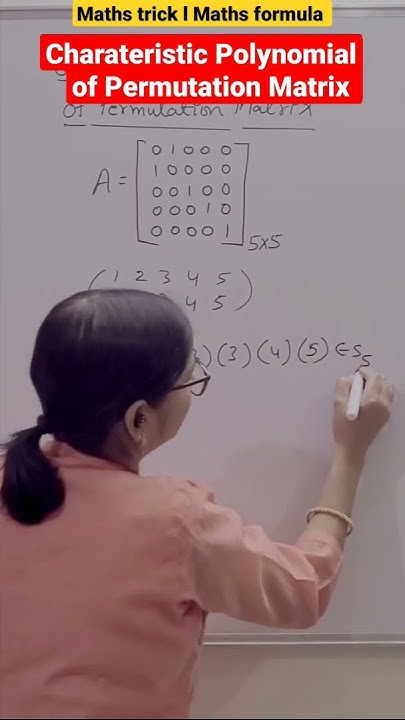 Maths trick l Maths formula
Charateristic Polynomial
of Permutation Matrix
Of Permutation Matrix
A =
0 1 0 0 0
1 0 0 0 0
0 0 1 0 0
0 0 0 1 0
0 0 0 0 1
5×5
( 1 2 3 4 5
4 5 )
) (3) (4) (5) ∈ S5